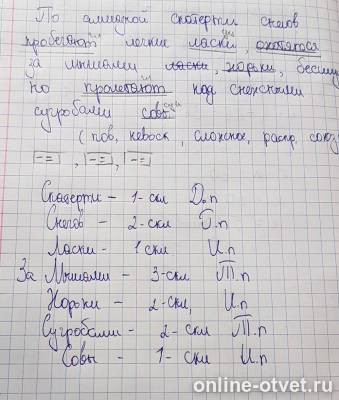 По алмазной скатерти снегов
пробегают легкие ласки, охотятся
за мышами ласки, норки, бесшум
но пролетают над снежными
сугробами совы.
(пов., невоск., сложное, распр. союз
[-=], [-=], [-=]
Скатерти - 1-скл Д.п
Снегов - 2-скл Р.п
Ласки - 1скл И.п
За Мышами - 3-скл Т.п
Норки - 2-скл, И.п
Сугробами - 2-скл Т.п
Совы - 1-скл И.п
online-otvet.ru